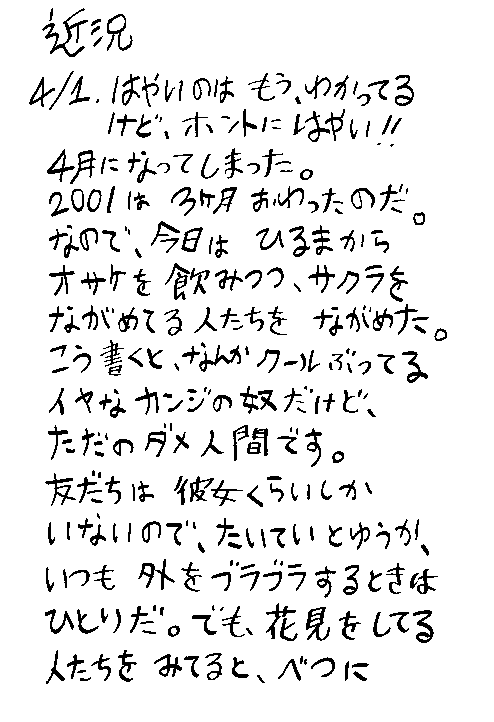 近況
4/1. はやいのは もう、わかってる
けど、ホントに はやい!!
4月になってしまった。
2001は 3ヶ月 おわったのだ。
なので、今日は ひるまから
オサケを 飲みつつ、サクラを
ながめてる 人たちを ながめた。
こう書くと、なんかクールぶってる
イヤなカンジの奴だけど、
ただのダメ人間です。
友だちは 彼女くらいしか
いないので、たいていとゆうか、
いつも 外を ブラブラするときは
ひとりだ。でも、花見をしてる
人たちを みてると、べつに